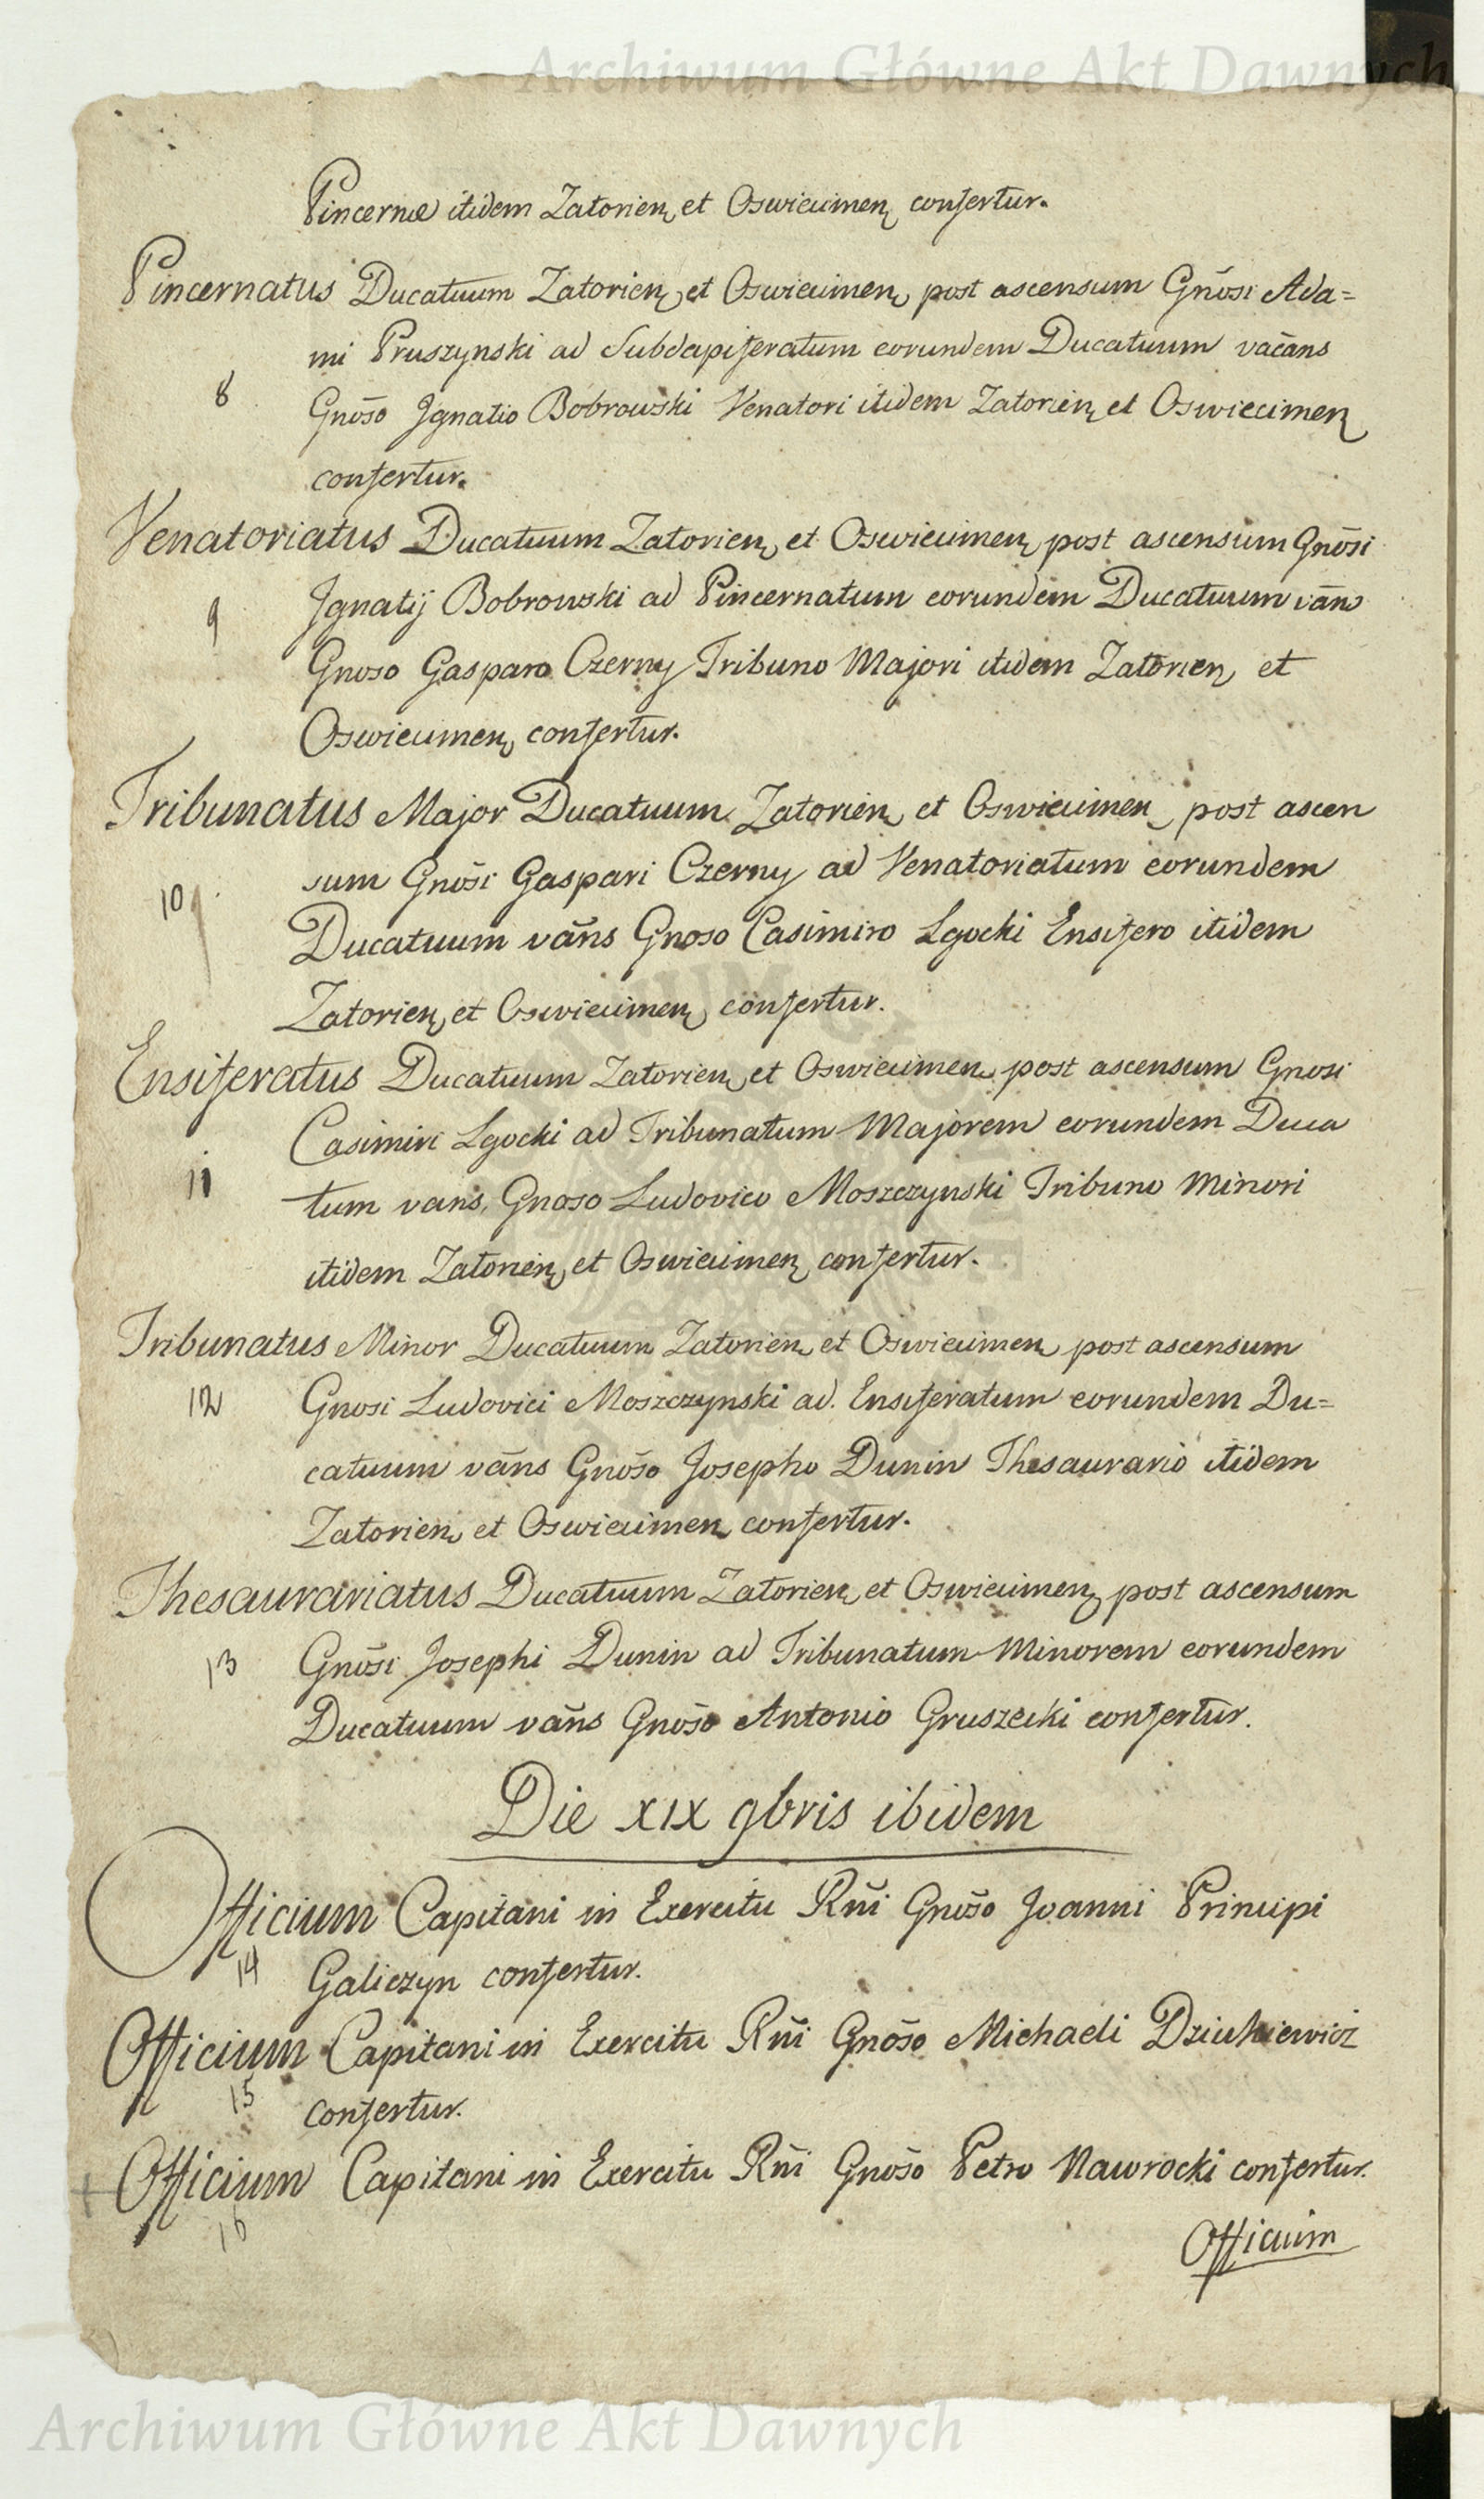 Archiwum Główne Akt Dawnych
Pincernæ itidem Zatorien et Oswiecimen confertur.
Pincernatus Ducatuum Zatorien et Oswiecimen post ascensum Gnōsi Ada=
mi Pruszynski ad Subdapiferatum eorundem Ducatuum vacāns
8 Gnōso Jgnatio Bobrowski Venatori itidem Zatorien et Oswiecimen
confertur.
Venatoriatus Ducatuum Zatorien et Oswiecimen post ascensum Gnōsi
9 Jgnatij Bobrowski ad Pincernatum eorundem Ducatuum vāns
Gnoso Gasparo Czerny Tribuno Majori itidem Zatorien et
Oswiecimen confertur.
Tribunatus Major Ducatuum Zatorien et Oswiecimen post ascen
sum Gnōsi Gaspari Czerny ad Venatoriatum eorundem
10 Ducatuum vāns Gnoso Casimiro Lgocki Ensifero itidem
Zatorien et Oswiecimen confertur.
Ensiferatus Ducatuum Zatorien et Oswiecimen post ascensum Gnosi
Casimiri Lgocki ad Tribunatum Majorem eorundem Duca
11 tum vans Gnoso Ludovico Moszczynski Tribuno Minori
itidem Zatorien et Oswiecimen confertur.
Tribunatus Minor Ducatuum Zatorien et Oswiecimen post ascensum
12 Gnosi Ludovici Moszczynski ad Ensiferatum eorundem Du=
catuum vāns Gnōso Josepho Dunin Thesaurario itidem
Zatorien et Oswiecimen confertur.
Thesaurariatus Ducatuum Zatorien et Oswiecimen post ascensum
13 Gnōsi Josephi Dunin ad Tribunatum Minorem eorundem
Ducatuum vāns Gnōso Antonio Gruszecki confertur.
Die XIX 9bris ibidem
Officium Capitani in Exercitu Rñi Gnōso Joanni Principi
14 Galiczyn confertur.
Officium Capitani in Exercitu Rñi Gnōso Michaeli Dziukiewicz
15 confertur.
Officium Capitani in Exercitu Rñi Gnōso Petro Nawrocki confertur.
16
Officium
Archiwum Główne Akt Dawnych